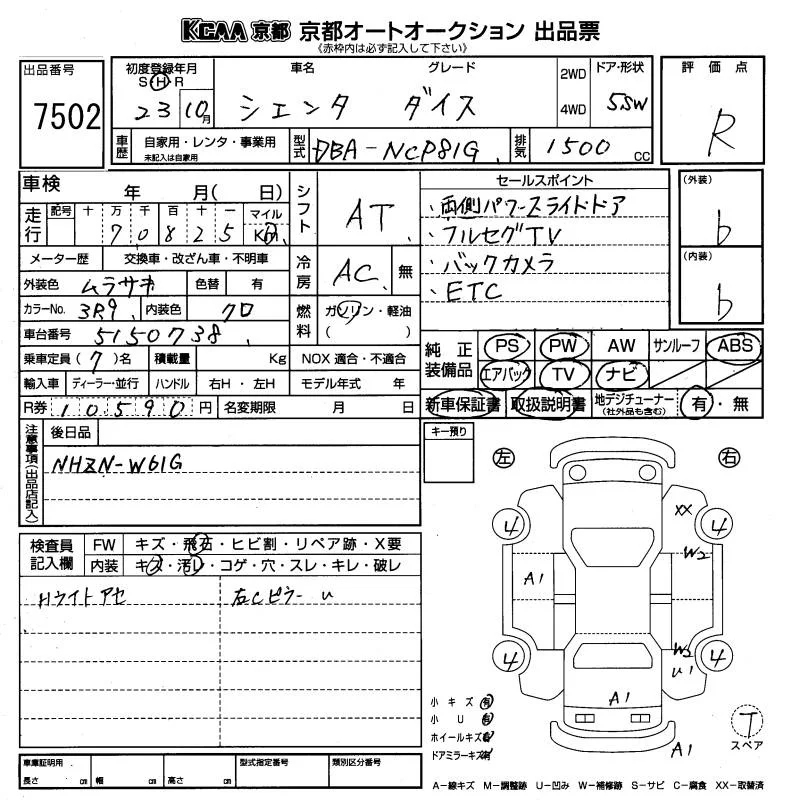 KCAA 京都 京都オートオークション 出品票
《赤枠内は必ず記入して下さい》
出品番号
7502
初度登録年月
S H R
23 10月
車名
グレード
シエンタ ダイス
2WD
4WD
ドア・形状
5SW
評価点
R
車歴
自家用・レンタ・事業用
未記入は自家用
型式
DBA-NCP81G
排気
1500 CC
車検
年 月( 日)
走行
記号 十 万 千 百 十 一 マイル
7 0 8 2 5 Km
シフト
AT
セールスポイント
・両側パワースライドドア
・フルセグTV
・バックカメラ
・ETC
(外装)
b
(内装)
b
メーター歴 交換車・改ざん車・不明車
冷房
AC 無
外装色 ムラサキ 色替 有
カラーNo. 3R9 内装色 クロ
燃料
ガソリン・軽油
( )
車台番号 5150738
乗車定員 (7)名 積載量 Kg NOX 適合・不適合
純正装備品
PS PW AW サンルーフ ABS
エアバック TV ナビ
輸入車 ディーラー・並行 ハンドル 右H・左H モデル年式 年
R券 10590円 名変期限 月 日
新車保証書 取扱説明書 地デジチューナー(社外品も含む) 有・無
注意事項(出品店記入)
後日品
NHZN-W61G
キー預り
左
右
検査員記入欄
FW キズ・飛石・ヒビ割・リペア跡・X要
内装 キズ・汚レ・コゲ・穴・スレ・キレ・破レ
Hライトアセ
右Cピラー U
4
XX
4
W2
A1
4
W3
U1
4
A1
A1
小キズ 有
小U 有
ホイールキズ 有
ドアミラーキズ 有
T
スペア
車庫証明用
長さ cm 幅 cm 高さ cm
型式指定番号
類別区分番号
A-線キズ M-調整跡 U-凹み W-補修跡 S-サビ C-腐食 XX-取替済